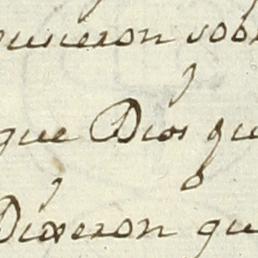 pusieron sob
que Dios qu
Dixeron qu